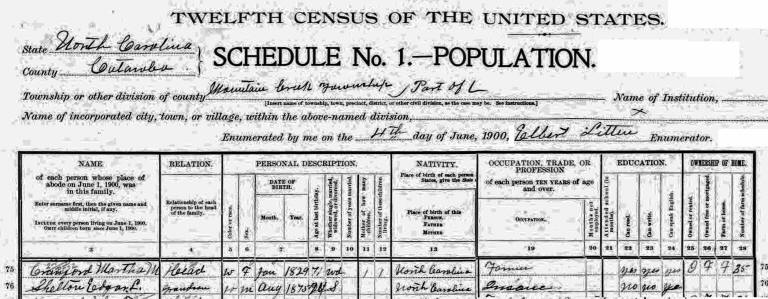 TWELFTH CENSUS OF THE UNITED STATES.
State North Carolina
County Catawba
SCHEDULE No. 1.—POPULATION.
Township or other division of county Mountain Creek Township (Part of)
Name of Institution, X
[Insert name of township, town, precinct, district, or other civil division, as the case may be. See instructions.]
Name of incorporated city, town, or village, within the above-named division,
Enumerated by me on the 4th day of June, 1900, Elbert Enumerator.
NAME RELATION. PERSONAL DESCRIPTION. NATIVITY. OCCUPATION, TRADE, OR PROFESSION EDUCATION. OWNERSHIP OF HOME.
of each person whose place of abode on June 1, 1900, was in this family.
Enter surname first, then the given name and middle initial, if any.
INCLUDE every person living on June 1, 1900.
OMIT children born since June 1, 1900.
Relationship of each person to the head of the family.
Color or race.
Sex.
DATE OF BIRTH.
Month. Year.
Age at last birthday.
Number of years married.
Mother of how many children.
Number of these children living.
Place of birth of this PERSON.
FATHER
MOTHER
of each person TEN YEARS of age and over.
OCCUPATION.
Months not employed.
Attended school (in months).
Can read.
Can write.
Can speak English.
Owned or rented.
Owned free or mortgaged.
Farm or house.
Number of farm schedule.
3 4 5 6 7 8 9 10 11 12 13 19 20 21 22 23 24 25 26 27 28
75 Crawford Martha M Head W F Jan 1829 71 wd 1 1 North Carolina Farmer yes yes yes O F F 35 75
76 Shelton Edgar L. grandson W m Aug 1875 24 S North Carolina no no yes 76